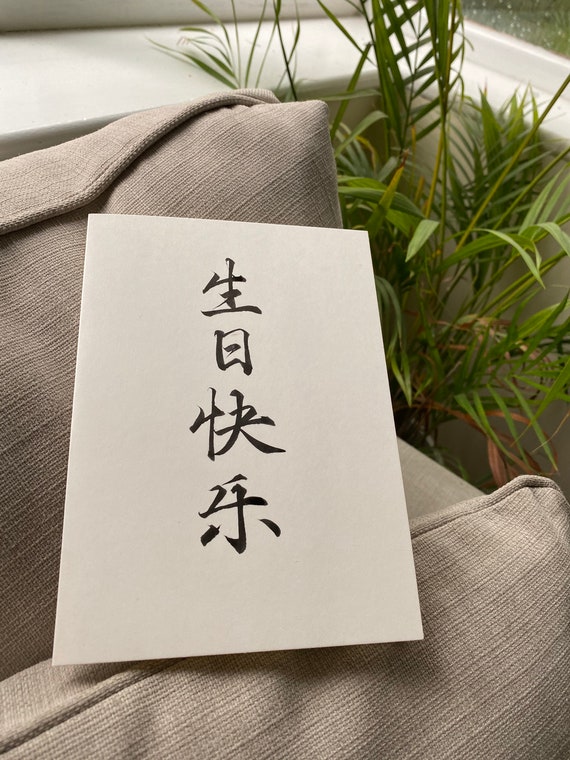 生日快乐